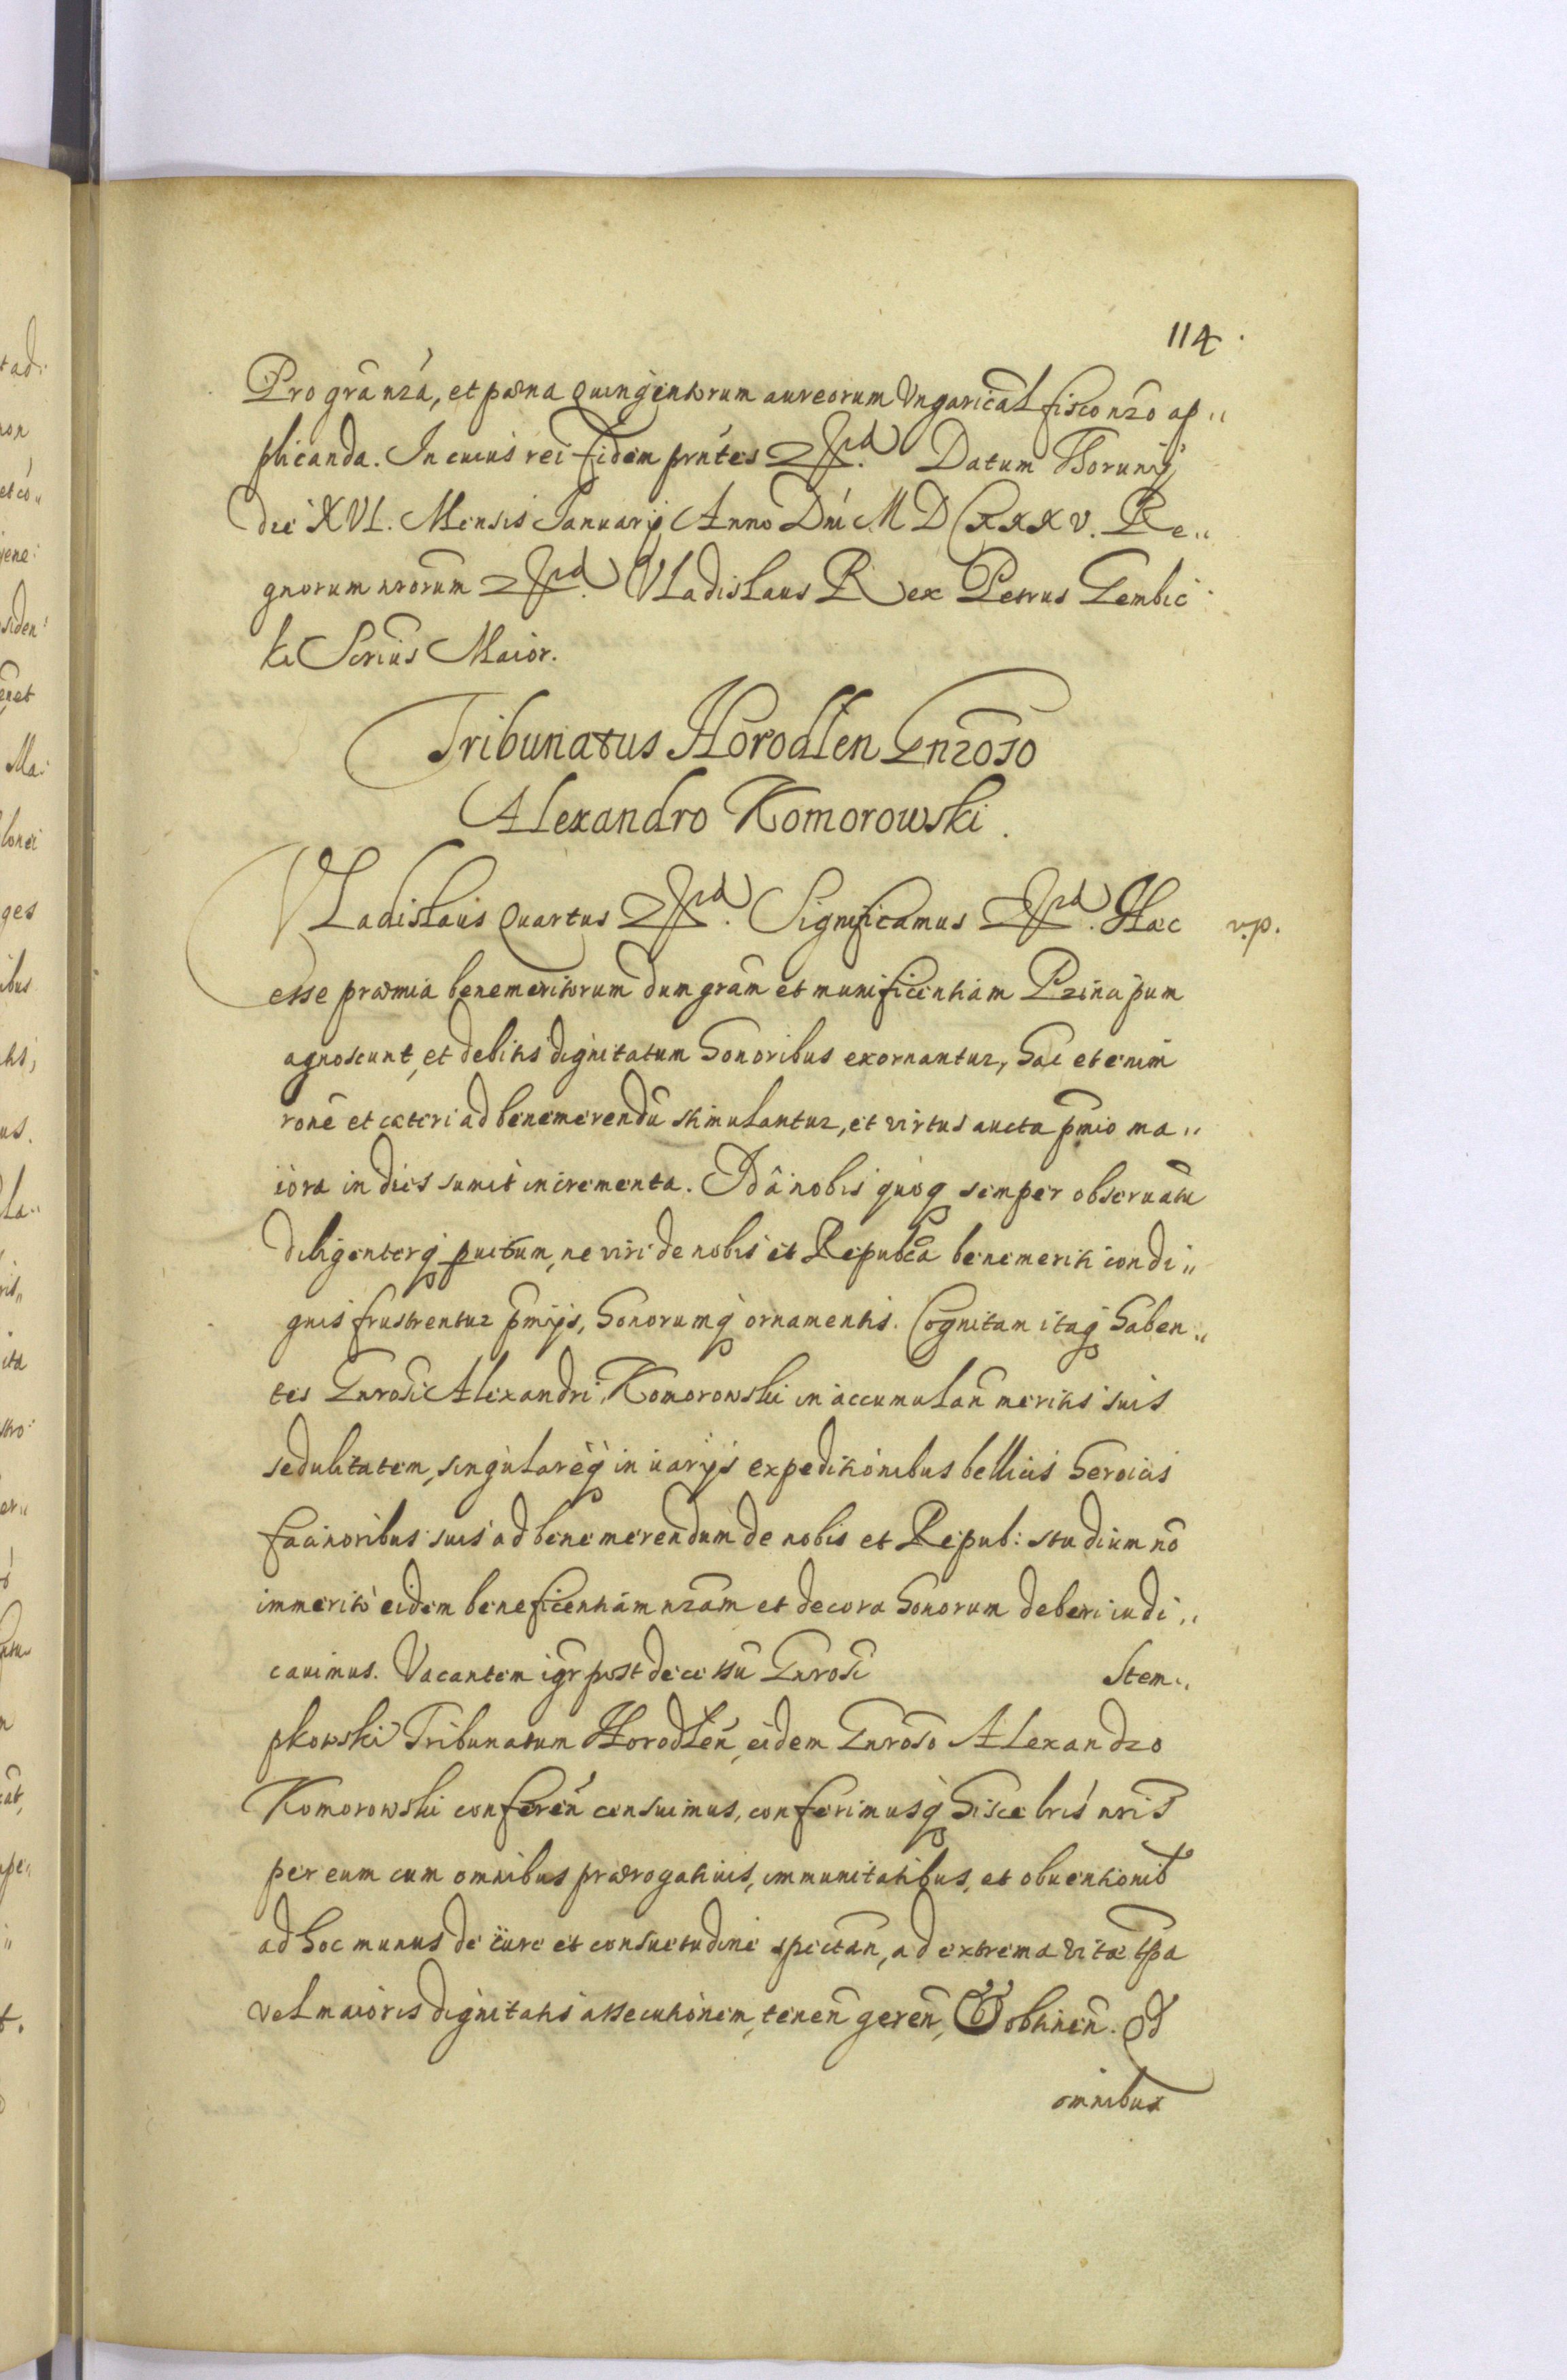 114.
Pro grã nrã, et pœna Quingentorum aureorum Vngarical fisco nro ap„
plicanda. In cuius rei fidem prñtes Datum Thorunij
die XVI. Mensis Januarij Anno Dñi M D C XXX V. Re„
gnorum nrorum Vladislaus Rex Petrus Gembic
ki Scrius Maior.
Tribunatus Horodlen Gnroso
Alexandro Komorowski.
Vladislaus Quartus Significamus Hæc v.p.
esse præmia benemeritorum dum gram et munificentiam Principum
agnoscunt, et debitis dignitatum honoribus exornantur, hac etenim
rone et cæteri ad benemerendũ stimulantur, et virtus aucta pmio ma„
iora in dies sumit incrementa. Id â nobis quoq semper obseruatũ
diligenterq, ne viri de nobis et Repubca benemeriti condi„
gnis frustrentur pmijs, honorumq ornamentis. Cognitam itaq haben„
tes Gnrosi Alexandri Komorowski in accumulañ meritis suis
sedulitatem, singularẽq in uarijs expeditionibus bellicis heroicis
facinoribus suis ad benemerendum de nobis et Repub: studium nõ
immeritò eidem beneficentiam nram et decora honorum deberi iudi„
cauimus. Vacantem igr post decessũ Gnrosi Stem„
pkowski Tribunatum Horodleñ, eidem Gnroso Alexandro
Komorowski confereñ censuimus, conferimusq hisce lris nris
per eum cum omnibus prærogatiuis, immunitatibus, et obuentionib
ad hoc munus de iure et consuetudine spectañ, ad extrema vitæ tpa
vel maioris dignitatis assecutionem, teneñ gereñ, & obtineñ. Qd
omnibus